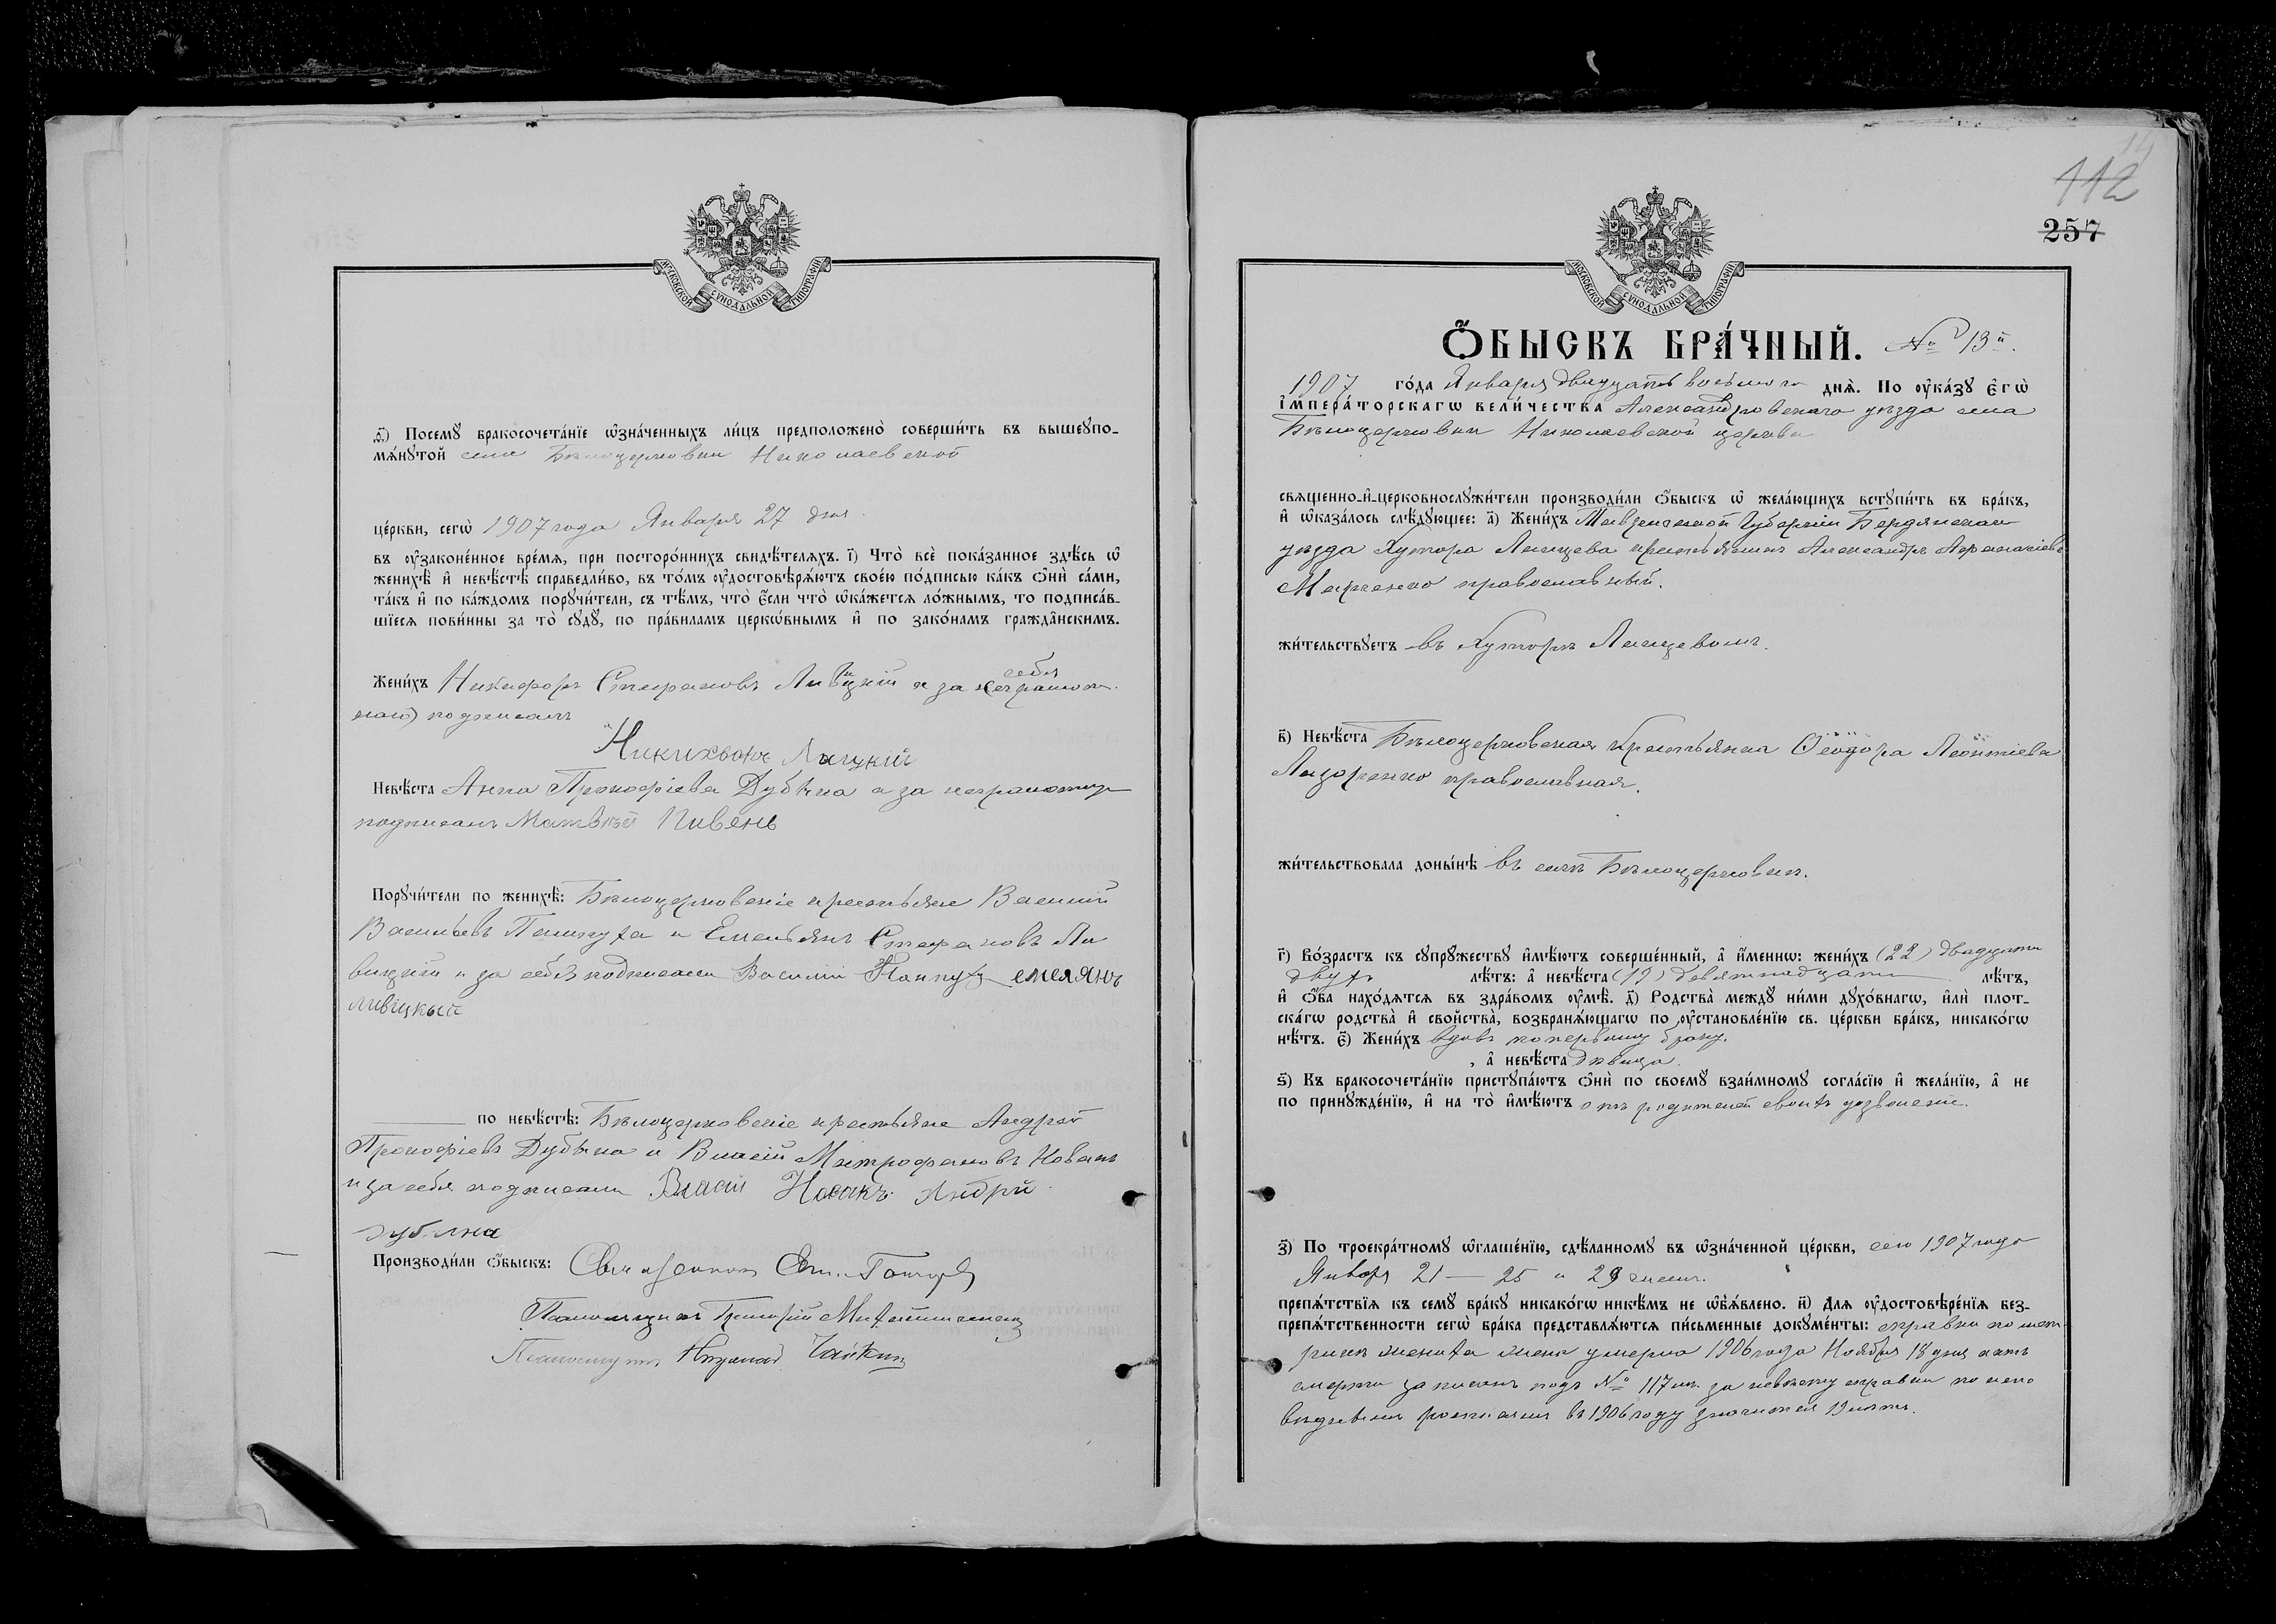 МОСКОВСКОЙ СѴНОДАЛЬНОЙ ТИПОГРАФІИ
ѳ҃) Посемꙋ̀ бракосочета́нїе ѡ҆зна́ченныхъ ли́цъ предположено̀ соверши́ть въ вышеꙋпо-
мѧ́нꙋтой селе Бѣлоцерковки Николаевской
це́ркви, сегѡ̀ 1907 года Января 27 дня
въ ᲂу҆зако́ненное вре́мѧ, при посторо́ннихъ свидѣ́телѧхъ. і҃) Что̀ всѐ пока́занное здѣ́сь ѡ҆
женихѣ̀ и҆ невѣ́стѣ справедли́во, въ то́мъ ᲂу҆достовѣрѧ́ютъ свое́ю по́дписью ка́къ ѻ҆нѝ са́ми,
та́къ и҆ по ка́ждомъ порꙋчи́тели, съ тѣ́мъ, что̀ є҆́сли что̀ ѡ҆ка́жетсѧ ло́жнымъ, то подписа́в-
шїесѧ пови́нны за то̀ сꙋдꙋ̀, по пра́виламъ церкѡ́внымъ и҆ по зако́намъ гражда̑нскимъ.
Жени́хъ Никифоръ Стефановъ Ливицкій а за себя
подписалъ
Никихворъ Лыцкий
Невѣ́ста Анна Прокофіева Дубына а за неграмотную
подписалъ Матвѣй Пивень
Порꙋчи́тели по женихѣ̀: Бѣлоцерковскіе крестьяне Василій
Васильевъ и Емельянъ Стефановъ Ли
вицкій и за себя подписали Василій емелянъ
ливіцкый
по невѣ́стѣ: Бѣлоцерковскіе крестьяне Андрей
Прокофіевъ Дубына и Власій Митрофановъ Новакъ
и за себя подписали Власій Новакъ Андрій
дубына
Производи́ли ѻ҆́быскъ: Священникъ
Псаломщикъ Григорій
Псаломщикъ Николай Чайкинъ
14
112
257
МОСКОВСКОЙ СѴНОДАЛЬНОЙ ТИПОГРАФІИ
Ѻ҆́БЫСКЪ БРА́ЧНЫЙ. № 13й.
1907 го́да Января двадцать восьмого днѧ̀. По ᲂу҆ка́зꙋ є҆гѡ̀
і҆мпера́торскагѡ вели́чества Александровскаго уѣзда села
Бѣлоцерковки Николаевской церкви
свѧщенно-и҆-церковнослꙋжи́тели производи́ли ѻ҆́быскъ ѡ҆ жела́ющихъ встꙋпи́ть въ бра́къ,
и҆ ѡ҆каза́лось слѣ́дꙋющее: а҃) Жени́хъ Таврической Губерніи Бердянскаго
уѣзда Хутора Ланцева крестьянинъ Александръ Афанасіевъ
Марченко православный.
жи́тельствꙋетъ въ Хуторѣ Ланцевомъ.
в҃) Невѣ́ста Бѣлоцерковская крестьянка Ѳеодора Леонтіева
Лазоренко православная.
жи́тельствовала доны́нѣ въ селѣ Бѣлоцерковкѣ.
г҃) Во́зрастъ къ сꙋпрꙋжествꙋ и҆мѣ́ютъ соверше́нный, а҆ и҆́меннѡ: жени́хъ (22) двадцати
двухъ лѣ́тъ: а҆ невѣ́ста (19) девятнадцати лѣ́тъ,
и҆ ѻ҆́ба нахо́дѧтсѧ въ здра́вомъ ᲂу҆мѣ̀. д҃) Родства̀ междꙋ ни́ми дꙋхо́внагѡ, и҆лѝ плот-
ска́гѡ родства̀ и҆ свойства̀, возбранѧ́ющагѡ по ᲂу҆становле́нїю св. це́ркви бра́къ, никако́гѡ
нѣ́тъ. є҃) Жени́хъ вдовъ по первому браку,
, а҆ невѣ́ста дѣвица.
ѕ҃) Къ бракосочета́нїю пристꙋпа́ютъ ѻ҆нѝ по своемꙋ̀ взаи́мномꙋ согла́сїю и҆ жела́нїю, а҆ не
по принꙋжде́нїю, и҆ на то̀ и҆мѣ́ютъ отъ родителей своихъ дозволеніе.
з҃) По троекра́тномꙋ ѡ҆глаше́нїю, сдѣ́ланномꙋ въ ѡ҆зна́ченной це́ркви, сего 1907 года
Января 21 — 25 и 29 числъ.
препѧ́тствїѧ къ семꙋ̀ бра́кꙋ никако́гѡ никѣ́мъ не ѡ҆б̾ѧ́влено. и҃) Длѧ ᲂу҆достовѣре́нїѧ без-
препѧ́тственности сегѡ̀ бра́ка представлѧ́ютсѧ пи́сьменные докꙋме́нты: справки по мет-
рикѣ жениха жена умерла 1906 года Ноября 18 дня актъ
смерти записанъ подъ № 117 мъ за невѣсту справки по испо
вѣднымъ росписямъ въ 1906 году значится 19 лѣтъ.